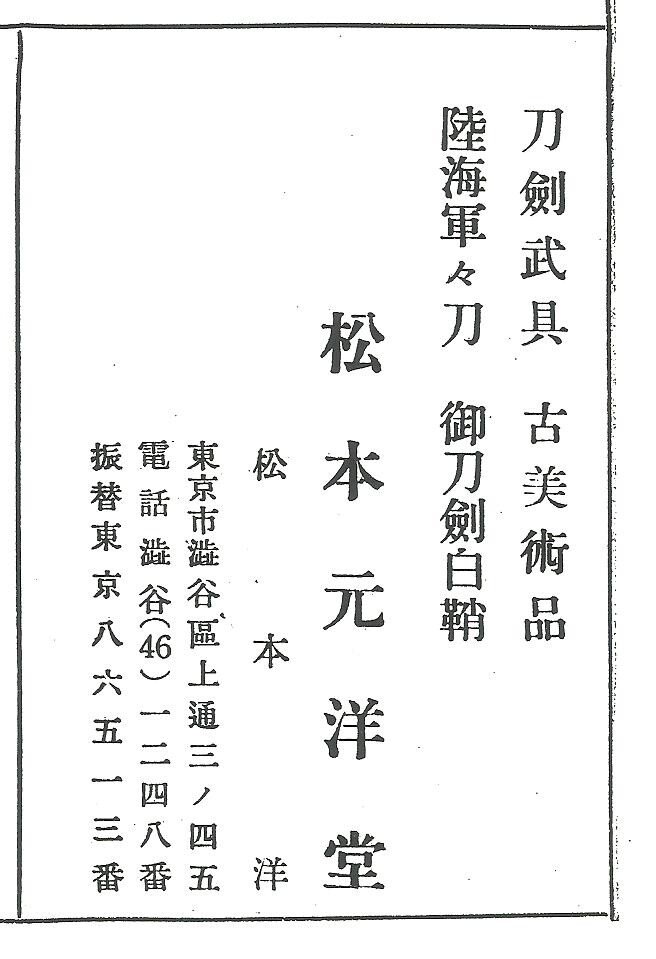 刀劍武具　古美術品
陸海軍々刀　御刀劍白鞘
松本元洋堂
松本洋
東京市澁谷區上通三ノ四五
電話澁谷(46)一二四八番
振替東京八六五一三番